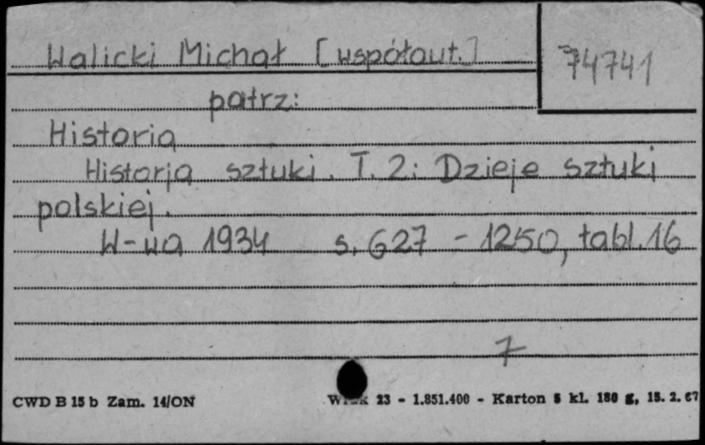 Walicki Michał [współaut.]
74741
patrz:
Historia
Historja sztuki. T. 2: Dzieje sztuki
polskiej.
W-wa 1934 s. 627 - 1250, tabl. 16
7
CWD B 15 b Zam. 14/ON
23 - 1.851.400 - Karton 5 kl. 180 g, 15. 2. 67